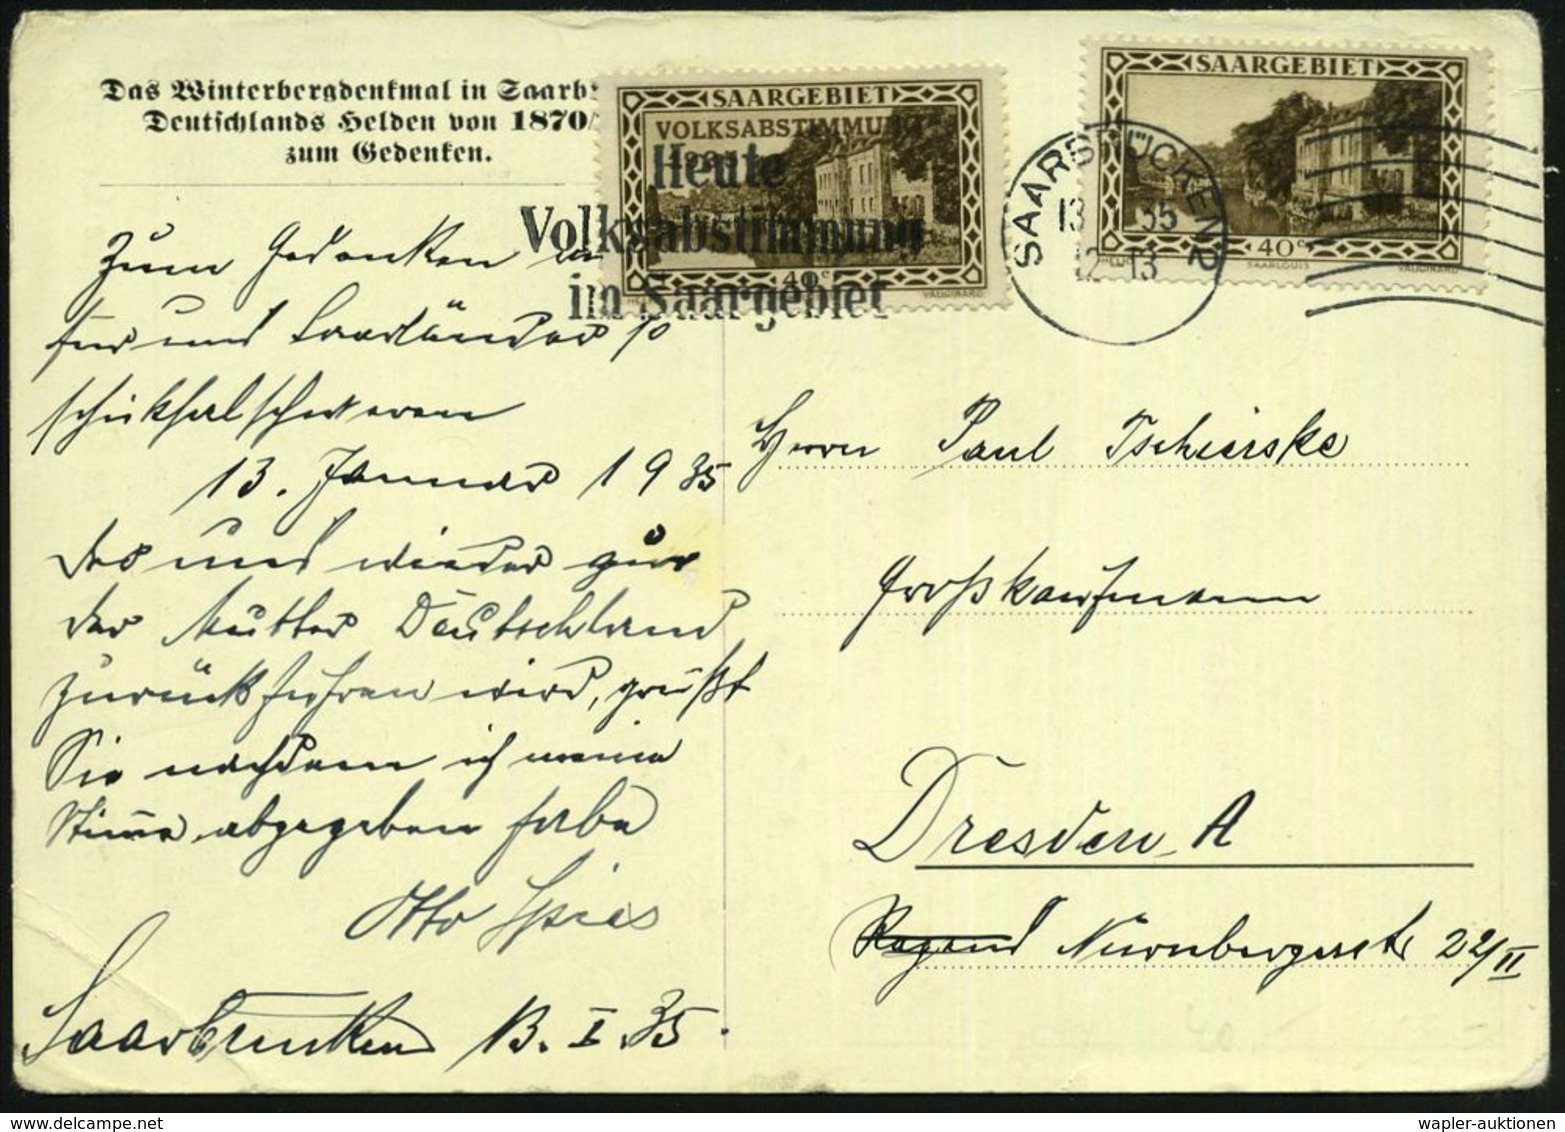 Das Winterbergdenkmal in Saarb
Deutschlands Helden von 1870/
zum Gedenken.
SAARGEBIET
VOLKSABSTIMMUNG
1935
40 c
VAUGIRARD
SAARGEBIET
40 c
SAARLOUIS
VAUGIRARD
Heute
Volksabstimmung
im Saargebiet
SAARBRÜCKEN 2
13 35
12-13
Zum Gedenken an
für uns Saarländer so
schicksalschweren
13. Januar 1935
der uns wieder zur
der Mutter Deutschland
zurückführen wird, grüßt
Sie nachdem ich meine
Stimme abgegeben habe
Otto Spies
Saarbrücken 13. I. 35.
Herrn Paul Tschierske
Großkaufmann
Dresden A
Nürnbergerstr 22/II
wapler-auktionen